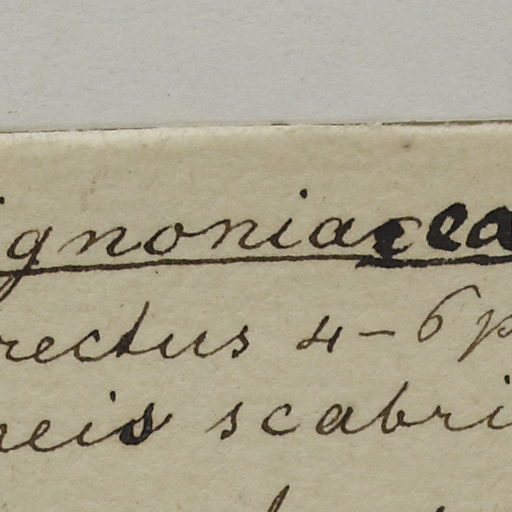 ignoniacea
rectus 4-6 p
neis scabri